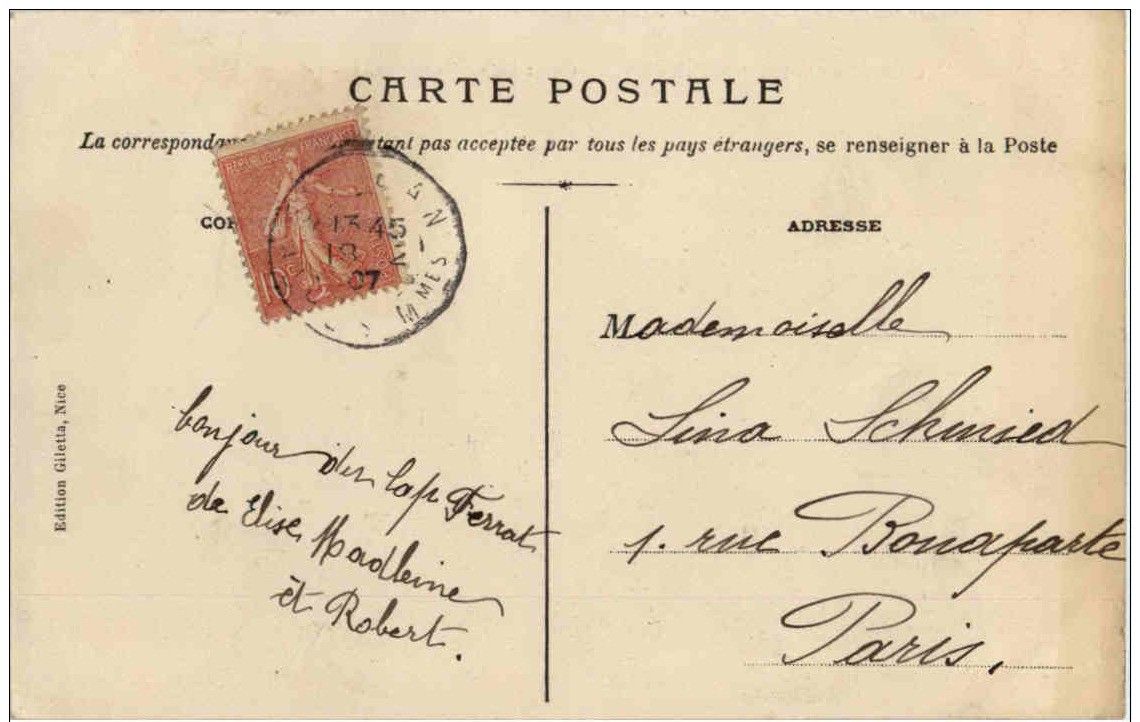 CARTE POSTALE
La correspondan tant pas acceptée par tous les pays étrangers, se renseigner à la Poste
RÉPUBLIQUE FRANÇAISE
10 c
13 45
07
MMES
ADRESSE
Edition Giletta, Nice
bonjour du Cap Ferrat
de Elise Madleine
èt Robert.
Mademoiselle
Lina Schmied
1. rue Bonaparte
Paris.